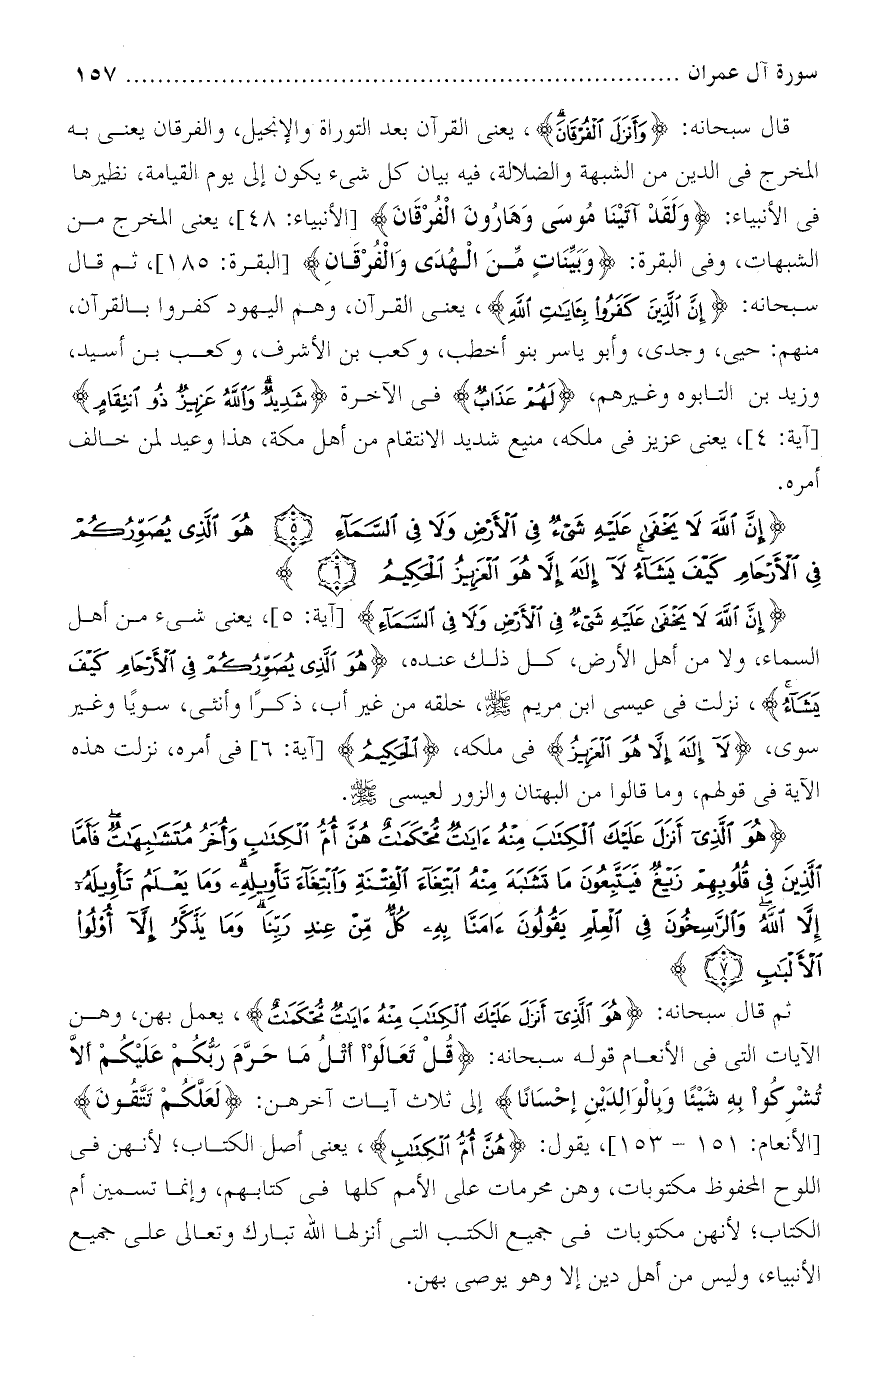 سورة آل عمران ........................................................................ ١٥٧
قال سبحانه: ﴿وَأَنزَلَ ٱلْفُرْقَانَۗ﴾، يعنى القرآن بعد التوراة والإنجيل، والفرقان يعنى به
المخرج فى الدين من الشبهة والضلالة، فيه بيان كل شىء يكون إلى يوم القيامة، نظيرها
فى الأنبياء: ﴿وَلَقَدْ آتَيْنَا مُوسَى وَهَارُونَ الْفُرْقَانَ﴾ [الأنبياء: ٤٨]، يعنى المخرج من
الشبهات، وفى البقرة: ﴿وَبَيِّنَاتٍ مِّنَ الْهُدَى وَالْفُرْقَانِ﴾ [البقرة: ١٨٥]، ثم قال
سبحانه: ﴿إِنَّ ٱلَّذِينَ كَفَرُوا۟ بِـَٔايَـٰتِ ٱللَّهِ﴾، يعنى القرآن، وهم اليهود كفروا بالقرآن،
منهم: حيى، وجدى، وأبو ياسر بنو أخطب، وكعب بن الأشرف، وكعب بن أسيد،
وزيد بن التابوه وغيرهم، ﴿لَهُمْ عَذَابٌ﴾ فى الآخرة ﴿شَدِيدٌۗ وَٱللَّهُ عَزِيزٌ ذُو ٱنتِقَامٍ﴾
[آية: ٤]، يعنى عزيز فى ملكه، منيع شديد الانتقام من أهل مكة، هذا وعيد لمن خالف
أمره.
﴿إِنَّ ٱللَّهَ لَا يَخْفَىٰ عَلَيْهِ شَىْءٌ فِى ٱلْأَرْضِ وَلَا فِى ٱلسَّمَآءِ ۝٥ هُوَ ٱلَّذِى يُصَوِّرُكُمْ
فِى ٱلْأَرْحَامِ كَيْفَ يَشَآءُۚ لَآ إِلَـٰهَ إِلَّا هُوَ ٱلْعَزِيزُ ٱلْحَكِيمُ ۝٦﴾
﴿إِنَّ ٱللَّهَ لَا يَخْفَىٰ عَلَيْهِ شَىْءٌ فِى ٱلْأَرْضِ وَلَا فِى ٱلسَّمَآءِ﴾ [آية: ٥]، يعنى شىء من أهل
السماء، ولا من أهل الأرض، كل ذلك عنده، ﴿هُوَ ٱلَّذِى يُصَوِّرُكُمْ فِى ٱلْأَرْحَامِ كَيْفَ
يَشَآءُۚ﴾، نزلت فى عيسى ابن مريم ﷺ، خلقه من غير أب، ذكرًا وأنثى، سويًا وغير
سوى، ﴿لَآ إِلَـٰهَ إِلَّا هُوَ ٱلْعَزِيزُ﴾ فى ملكه، ﴿ٱلْحَكِيمُ﴾ [آية: ٦] فى أمره، نزلت هذه
الآية فى قولهم، وما قالوا من البهتان والزور لعيسى ﷺ.
﴿هُوَ ٱلَّذِىٓ أَنزَلَ عَلَيْكَ ٱلْكِتَـٰبَ مِنْهُ ءَايَـٰتٌ مُّحْكَمَـٰتٌ هُنَّ أُمُّ ٱلْكِتَـٰبِ وَأُخَرُ مُتَشَـٰبِهَـٰتٌۖ فَأَمَّا
ٱلَّذِينَ فِى قُلُوبِهِمْ زَيْغٌ فَيَتَّبِعُونَ مَا تَشَـٰبَهَ مِنْهُ ٱبْتِغَآءَ ٱلْفِتْنَةِ وَٱبْتِغَآءَ تَأْوِيلِهِۦۗ وَمَا يَعْلَمُ تَأْوِيلَهُۥٓ
إِلَّا ٱللَّهُۗ وَٱلرَّٰسِخُونَ فِى ٱلْعِلْمِ يَقُولُونَ ءَامَنَّا بِهِۦ كُلٌّ مِّنْ عِندِ رَبِّنَاۗ وَمَا يَذَّكَّرُ إِلَّآ أُو۟لُوا۟
ٱلْأَلْبَـٰبِ ۝٧﴾
ثم قال سبحانه: ﴿هُوَ ٱلَّذِىٓ أَنزَلَ عَلَيْكَ ٱلْكِتَـٰبَ مِنْهُ ءَايَـٰتٌ مُّحْكَمَـٰتٌ﴾، يعمل بهن، وهن
الآيات التى فى الأنعام قوله سبحانه: ﴿قُلْ تَعَالَوْاْ أَتْلُ مَا حَرَّمَ رَبُّكُمْ عَلَيْكُمْ أَلاَّ
تُشْرِكُواْ بِهِ شَيْئًا وَبِالْوَالِدَيْنِ إِحْسَانًا﴾ إلى ثلاث آيات آخرهن: ﴿لَعَلَّكُمْ تَتَّقُونَ﴾
[الأنعام: ١٥١ - ١٥٣]، يقول: ﴿هُنَّ أُمُّ ٱلْكِتَـٰبِ﴾، يعنى أصل الكتاب؛ لأنهن فى
اللوح المحفوظ مكتوبات، وهن محرمات على الأمم كلها فى كتابهم، وإنما تسمين أم
الكتاب؛ لأنهن مكتوبات فى جميع الكتب التى أنزلها الله تبارك وتعالى على جميع
الأنبياء، وليس من أهل دين إلا وهو يوصى بهن.